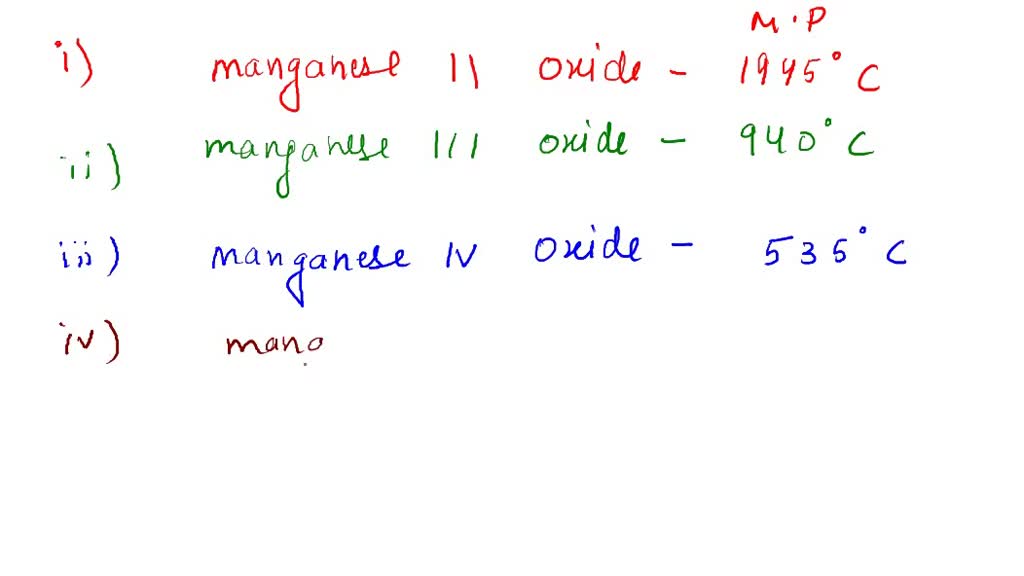 M.P
i) manganese II oxide - 1945°C
ii) manganese III oxide - 940°C
iii) manganese IV oxide - 535°C
iv) mang